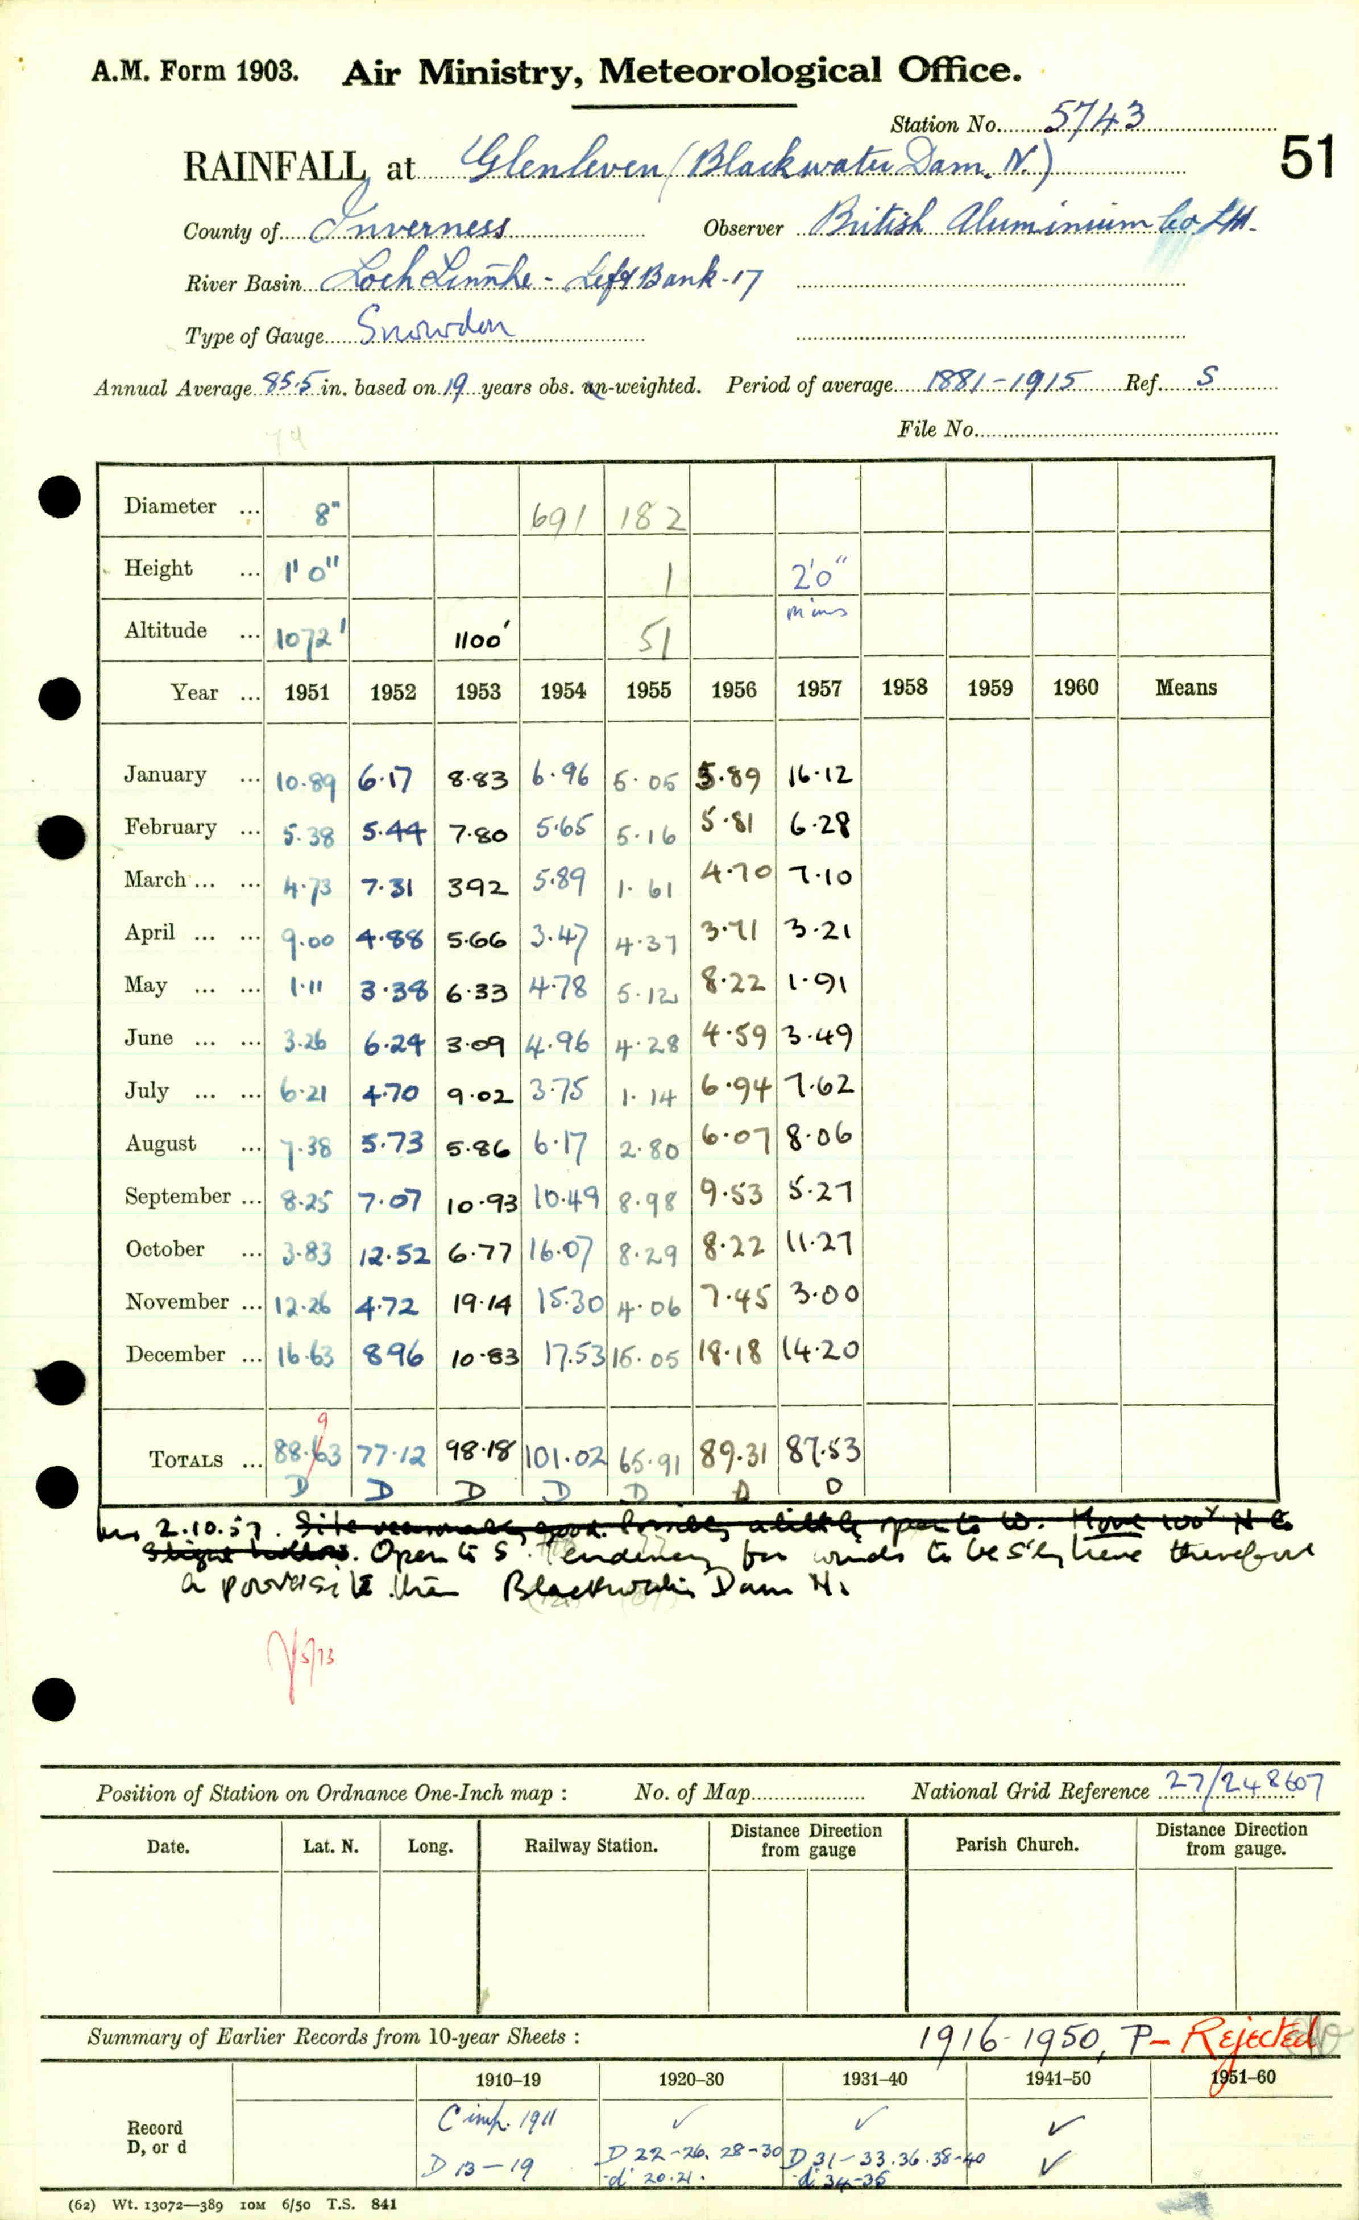 A.M. Form 1903. Air Ministry, Meteorological Office.
Station No. 5743
51
RAINFALL at Glenleven (Blackwater Dam. N.)
County of Inverness Observer British Aluminium Co. Ltd.
River Basin Loch Linnhe - Left Bank - 17
Type of Gauge Snowdon
Annual Average 85.5 in. based on 19 years obs. un-weighted. Period of average 1881-1915 Ref. S
File No.
Diameter ... 8" 691 182
Height ... 1' 0" 1 2'0"
Altitude ... 1072' 1100' 51
Year ... 1951 1952 1953 1954 1955 1956 1957 1958 1959 1960 Means
January ... 10.89 6.17 8.83 6.96 5.05 5.89 16.12
February ... 5.38 5.44 7.80 5.65 5.16 5.81 6.28
March ... ... 4.73 7.31 392 5.89 1.61 4.70 7.10
April ... ... 9.00 4.88 5.66 3.47 4.37 3.71 3.21
May ... ... 1.11 3.38 6.33 4.78 5.12 8.22 1.91
June ... ... 3.26 6.24 3.09 4.96 4.28 4.59 3.49
July ... ... 6.21 4.70 9.02 3.75 1.14 6.94 7.62
August ... 7.38 5.73 5.86 6.17 2.80 6.07 8.06
September ... 8.25 7.07 10.93 10.49 8.98 9.53 5.27
October ... 3.83 12.52 6.77 16.07 8.29 8.22 11.27
November ... 12.26 4.72 19.14 15.30 4.06 7.45 3.00
December ... 16.63 896 10.83 17.53 15.05 18.18 14.20
9
TOTALS ... 88.63 77.12 98.18 101.02 65.91 89.31 87.53
D D D D D D D
2.10.57. Site reasonably good. Possibly a little open to W. Move 100y N E
Slight hollow. Open to S. Tendency for winds to be S'ly here therefore
a poorer site than Blackwater Dam N.
5/73
Position of Station on Ordnance One-Inch map : No. of Map National Grid Reference 27/248607
Date. Lat. N. Long. Railway Station. Distance from gauge Direction Parish Church. Distance from gauge. Direction
Summary of Earlier Records from 10-year Sheets : 1916-1950, P - Rejected
1910-19 1920-30 1931-40 1941-50 1951-60
Record C imp. 1911 ✓ ✓ ✓
D, or d D 13-19 D 22-26. 28-30 D 31-33.36.38-40 ✓
d: 20.21. d: 34-35
(62) Wt. 13072—389 10M 6/50 T.S. 841